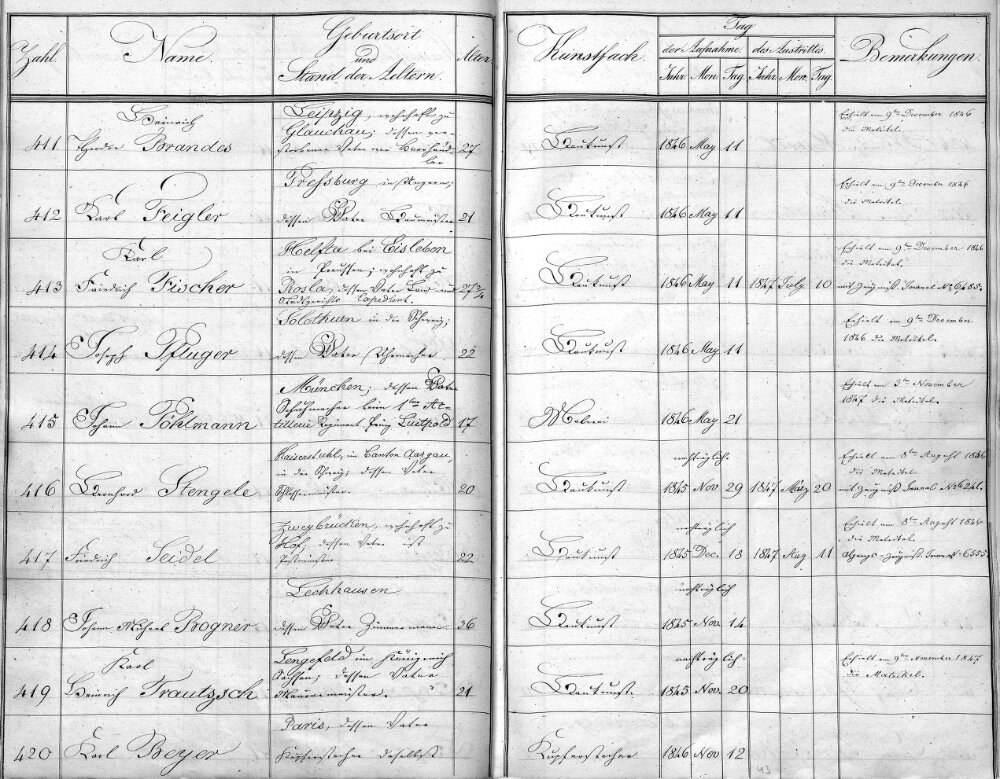 Zahl. Name. Geburtsort und Stand der Aeltern. Alter Kunstfach. Tag Bemerkungen.
der Aufnahme. des Austrittes.
Jahr Mon. Tag Jahr Mon. Tag
411 Heinrich Theodor Brandes
Leipzig, wohnhaft zu
Glauchau; dessen ver-
storbener Vater war
27 Baukunst 1846 May 11
Erhielt am 9ten December 1846
die Matrikel.
412 Karl Feigler
Pressburg in Ungarn;
dessen Vater Baumeister
21 Baukunst 1846 May 11
Erhielt am 9ten December 1846
die Matrikel.
413 Karl Friedrich Fischer
Helfta bei Eisleben
in Preussen; wohnhaft zu
Rosla; dessen Vater Land und
Baukunst 1846 May 11 1847 July 10
Erhielt am 9ten December 1846
die Matrikel.
mit Zeugniß
414 Joseph Pfluger
Solothurn in der Schweiz;
dessen Vater
22 Baukunst 1846 May 11
Erhielt am 9ten December
1846 die Matrikel.
415 Johann Pöhlmann
München; dessen Vater
Schuhmacher beim 1ten Ar-
tillerie Regiment Prinz Luitpold
17 Malerei 1846 May 21
Erhielt am 3ten November
1847 die Matrikel.
416 Bernhard Stengele
Kaiserstuhl, in Canton Aargau,
in der Schweiz; dessen Vater
Schlossermeister.
20 Baukunst nachträglich 1845 Nov 29 1847 März 20
Erhielt am 8ten August 1846
die Matrikel.
mit Zeugniß Journal No 6241.
417 Friedrich Seidel
Zweybrücken, wohnhaft zu
Hof, dessen Vater ist
22 Baukunst nachträglich 1845 Dec. 13 1847 Aug 11
Erhielt am 8ten August 1846
die Matrikel.
Abgangs-Zeugniß 6555.
418 Johann Michael Rogner
Lechhausen
dessen Vater Zimmermann
26 Baukunst nachträglich 1845 Nov. 14
419 Karl Heinrich Trautzsch
Lengefeld im Königreich
Sachsen; dessen Vater
Maurermeister.
21 Baukunst. nachträglich 1845 Nov. 20
Erhielt am 9ten November 1847
die Matrikel.
420 Karl Beyer
Paris, dessen Vater
Kupferstecher daselbst
Kupferstecher 1846 Nov 12
43